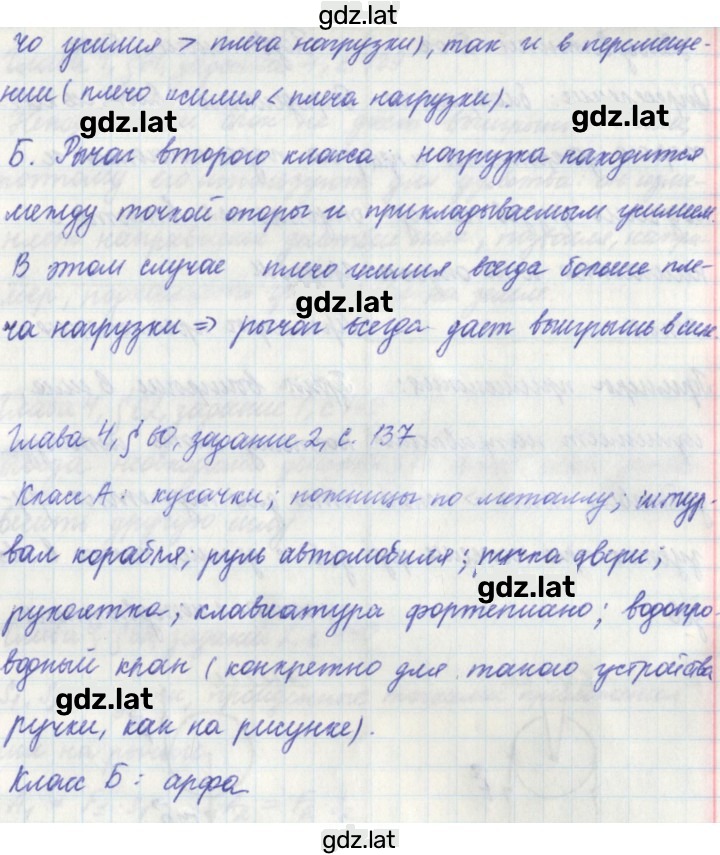 gdz.lat
чо усилия > плеча нагрузки), так и в перемеще-
нии (плечо усилия < плеча нагрузки).
gdz.lat
gdz.lat
Б. Рычаг второго класса нагрузка находится
между точкой опоры и прикладываемым усилием
В этом случае плечо усилия всегда больше пле-
gdz.lat
ча нагрузки => рычаг всегда дает выигрыш в силе.
Глава 4, § 60, задание 2, с. 137
Класс А: кусачки; ножницы по металлу; штур-
вал корабля; руль автомобиля; ручка двери;
gdz.lat
рукоятка; клавиатура фортепиано; водопро-
водный кран (конкретно для такого устройства
gdz.lat
ручки, как на рисунке).
Класс Б: арфа
gdz.lat